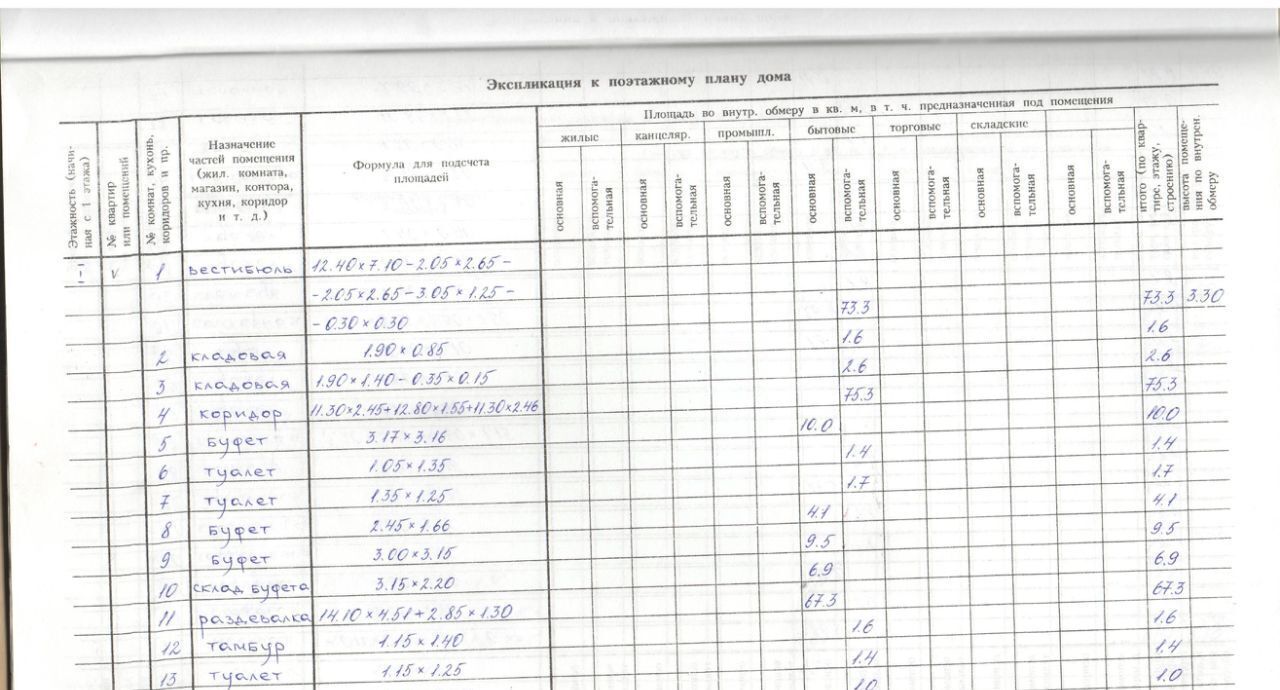 Экспликация к поэтажному плану дома
Этажность (начиная с 1 этажа)
№ квартир или помещений
№ комнат, кухонь, коридоров и пр.
Назначение частей помещения (жил. комната, магазин, контора, кухня, коридор и т. д.)
Формула для подсчета площадей
Площадь во внутр. обмеру в кв. м, в т. ч. предназначенная под помещения
жилые канцеляр. промышл. бытовые торговые складские
основная вспомогательная основная вспомогательная основная вспомогательная основная вспомогательная основная вспомогательная основная вспомогательная основная вспомогательная
итого (по квартире, этажу, строению)
высота помещения по внутрен. обмеру
I V 1 вестибюль 12.40×7.10-2.05×2.65-
-2.05×2.65-3.05×1.25-
-0.30×0.30 73.3 73.3 3.30
2 кладовая 1.90×0.85 1.6 1.6
3 кладовая 1.90×1.40-0.35×0.15 2.6 2.6
4 коридор 11.30×2.45+12.80×1.55+11.30×2.46 75.3 75.3
5 буфет 3.17×3.16 10.0 10.0
6 туалет 1.05×1.35 1.4 1.4
7 туалет 1.35×1.25 1.7 1.7
8 буфет 2.45×1.66 4.1 4.1
9 буфет 3.00×3.15 9.5 9.5
10 склад буфета 3.15×2.20 6.9 6.9
11 раздевалка 14.10×4.51+2.85×1.30 67.3 67.3
12 тамбур 1.15×1.40 1.6 1.6
13 туалет 1.15×1.25 1.4 1.4
1.0 1.0